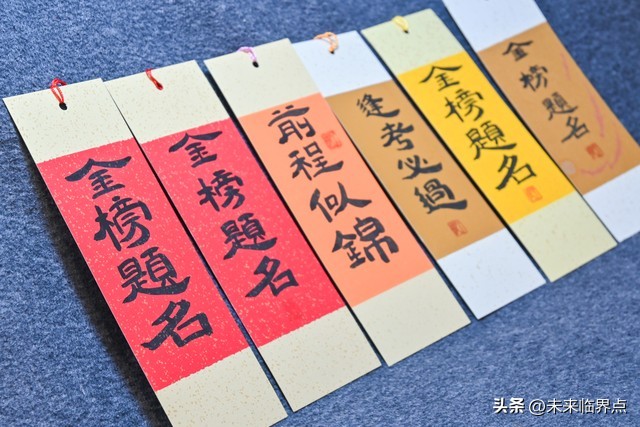 金榜題名
金榜題名
前程似錦
逢考必過
金榜題名
金榜題名
头条 @未来临界点